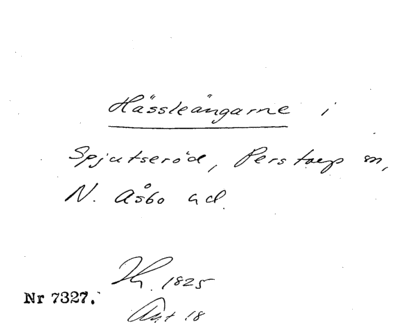 Hässleängarne i
Spjutseröd, Perstorp sn,
N. Åsbo hd.
Nr 7327.
1825
Akt 18